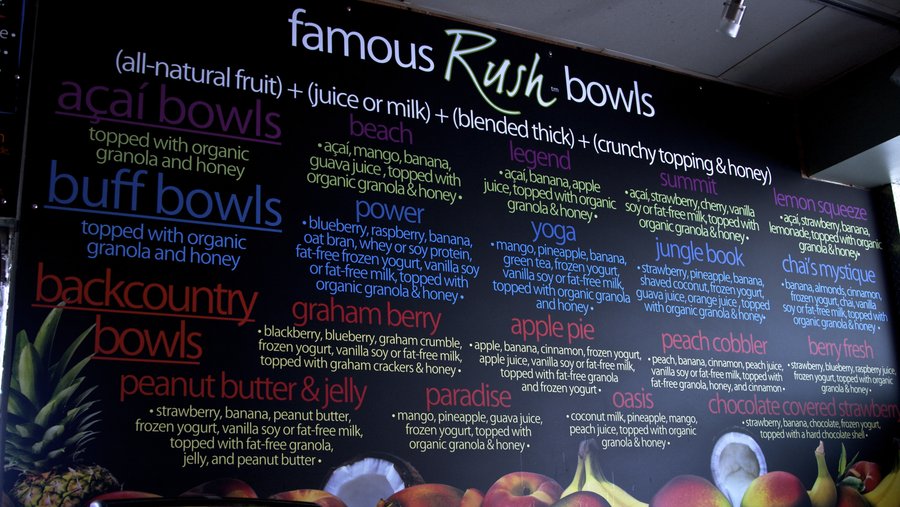 famous Rush™ bowls
(all-natural fruit) + (juice or milk) + (blended thick) + (crunchy topping & honey)
açaí bowls
topped with organic
granola and honey
beach
• açaí, mango, banana,
guava juice , topped with
organic granola & honey •
legend
• açaí, banana, apple
juice, topped with organic
granola & honey •
summit
• açaí, strawberry, cherry, vanilla
soy or fat-free milk, topped with
organic granola & honey •
lemon squeeze
• açaí, strawberry, banana,
lemonade, topped with organic
granola & honey •
buff bowls
topped with organic
granola and honey
power
• blueberry, raspberry, banana,
oat bran, whey or soy protein,
fat-free frozen yogurt, vanilla soy
or fat-free milk, topped with
organic granola & honey •
yoga
• mango, pineapple, banana,
green tea, frozen yogurt,
vanilla soy or fat-free milk,
topped with organic granola
and honey •
jungle book
• strawberry, pineapple, banana,
shaved coconut, frozen yogurt,
guava juice, orange juice , topped
with organic granola & honey •
chai's mystique
• banana, almonds, cinnamon,
frozen yogurt, chai, vanilla
soy or fat-free milk, topped with
organic granola & honey •
backcountry
bowls
graham berry
• blackberry, blueberry, graham crumble,
frozen yogurt, vanilla soy or fat-free milk,
topped with graham crackers & honey •
apple pie
• apple, banana, cinnamon, frozen yogurt,
apple juice, vanilla soy or fat-free milk,
topped with fat-free granola
and frozen yogurt •
peach cobbler
• peach, banana, cinnamon, peach juice,
vanilla soy or fat-free milk, topped with
fat-free granola, honey, and cinnamon •
berry fresh
• strawberry, blueberry, raspberry juice,
frozen yogurt, topped with organic
granola & honey •
peanut butter & jelly
• strawberry, banana, peanut butter,
frozen yogurt, vanilla soy or fat-free milk,
topped with fat-free granola,
jelly, and peanut butter •
paradise
• mango, pineapple, guava juice,
frozen yogurt, topped with
organic granola & honey •
oasis
• coconut milk, pineapple, mango,
peach juice, topped with organic
granola & honey •
chocolate covered strawberry
• strawberry, banana, chocolate, frozen yogurt,
topped with a hard chocolate shell •